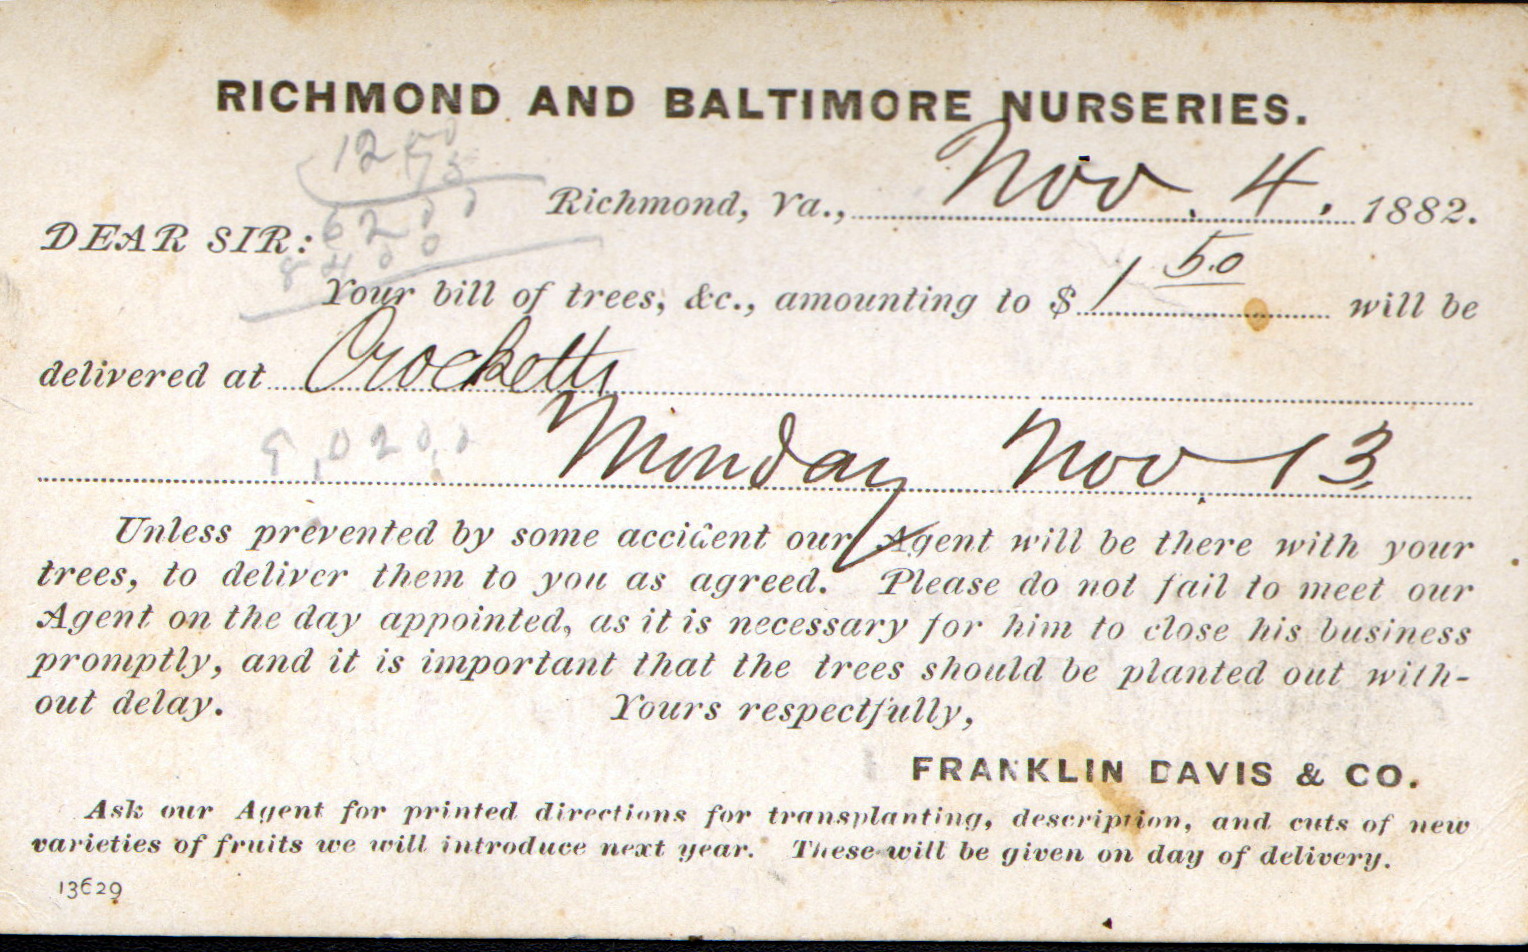 RICHMOND AND BALTIMORE NURSERIES.
Richmond, Va., Nov. 4. 1882.
DEAR SIR:
Your bill of trees, &c., amounting to $ 1 50 will be
delivered at Crocketts
Monday Nov. 13.
Unless prevented by some accident our Agent will be there with your
trees, to deliver them to you as agreed. Please do not fail to meet our
Agent on the day appointed, as it is necessary for him to close his business
promptly, and it is important that the trees should be planted out with-
out delay. Yours respectfully,
FRANKLIN DAVIS & CO.
Ask our Agent for printed directions for transplanting, description, and cuts of new
varieties of fruits we will introduce next year. These will be given on day of delivery.
13629